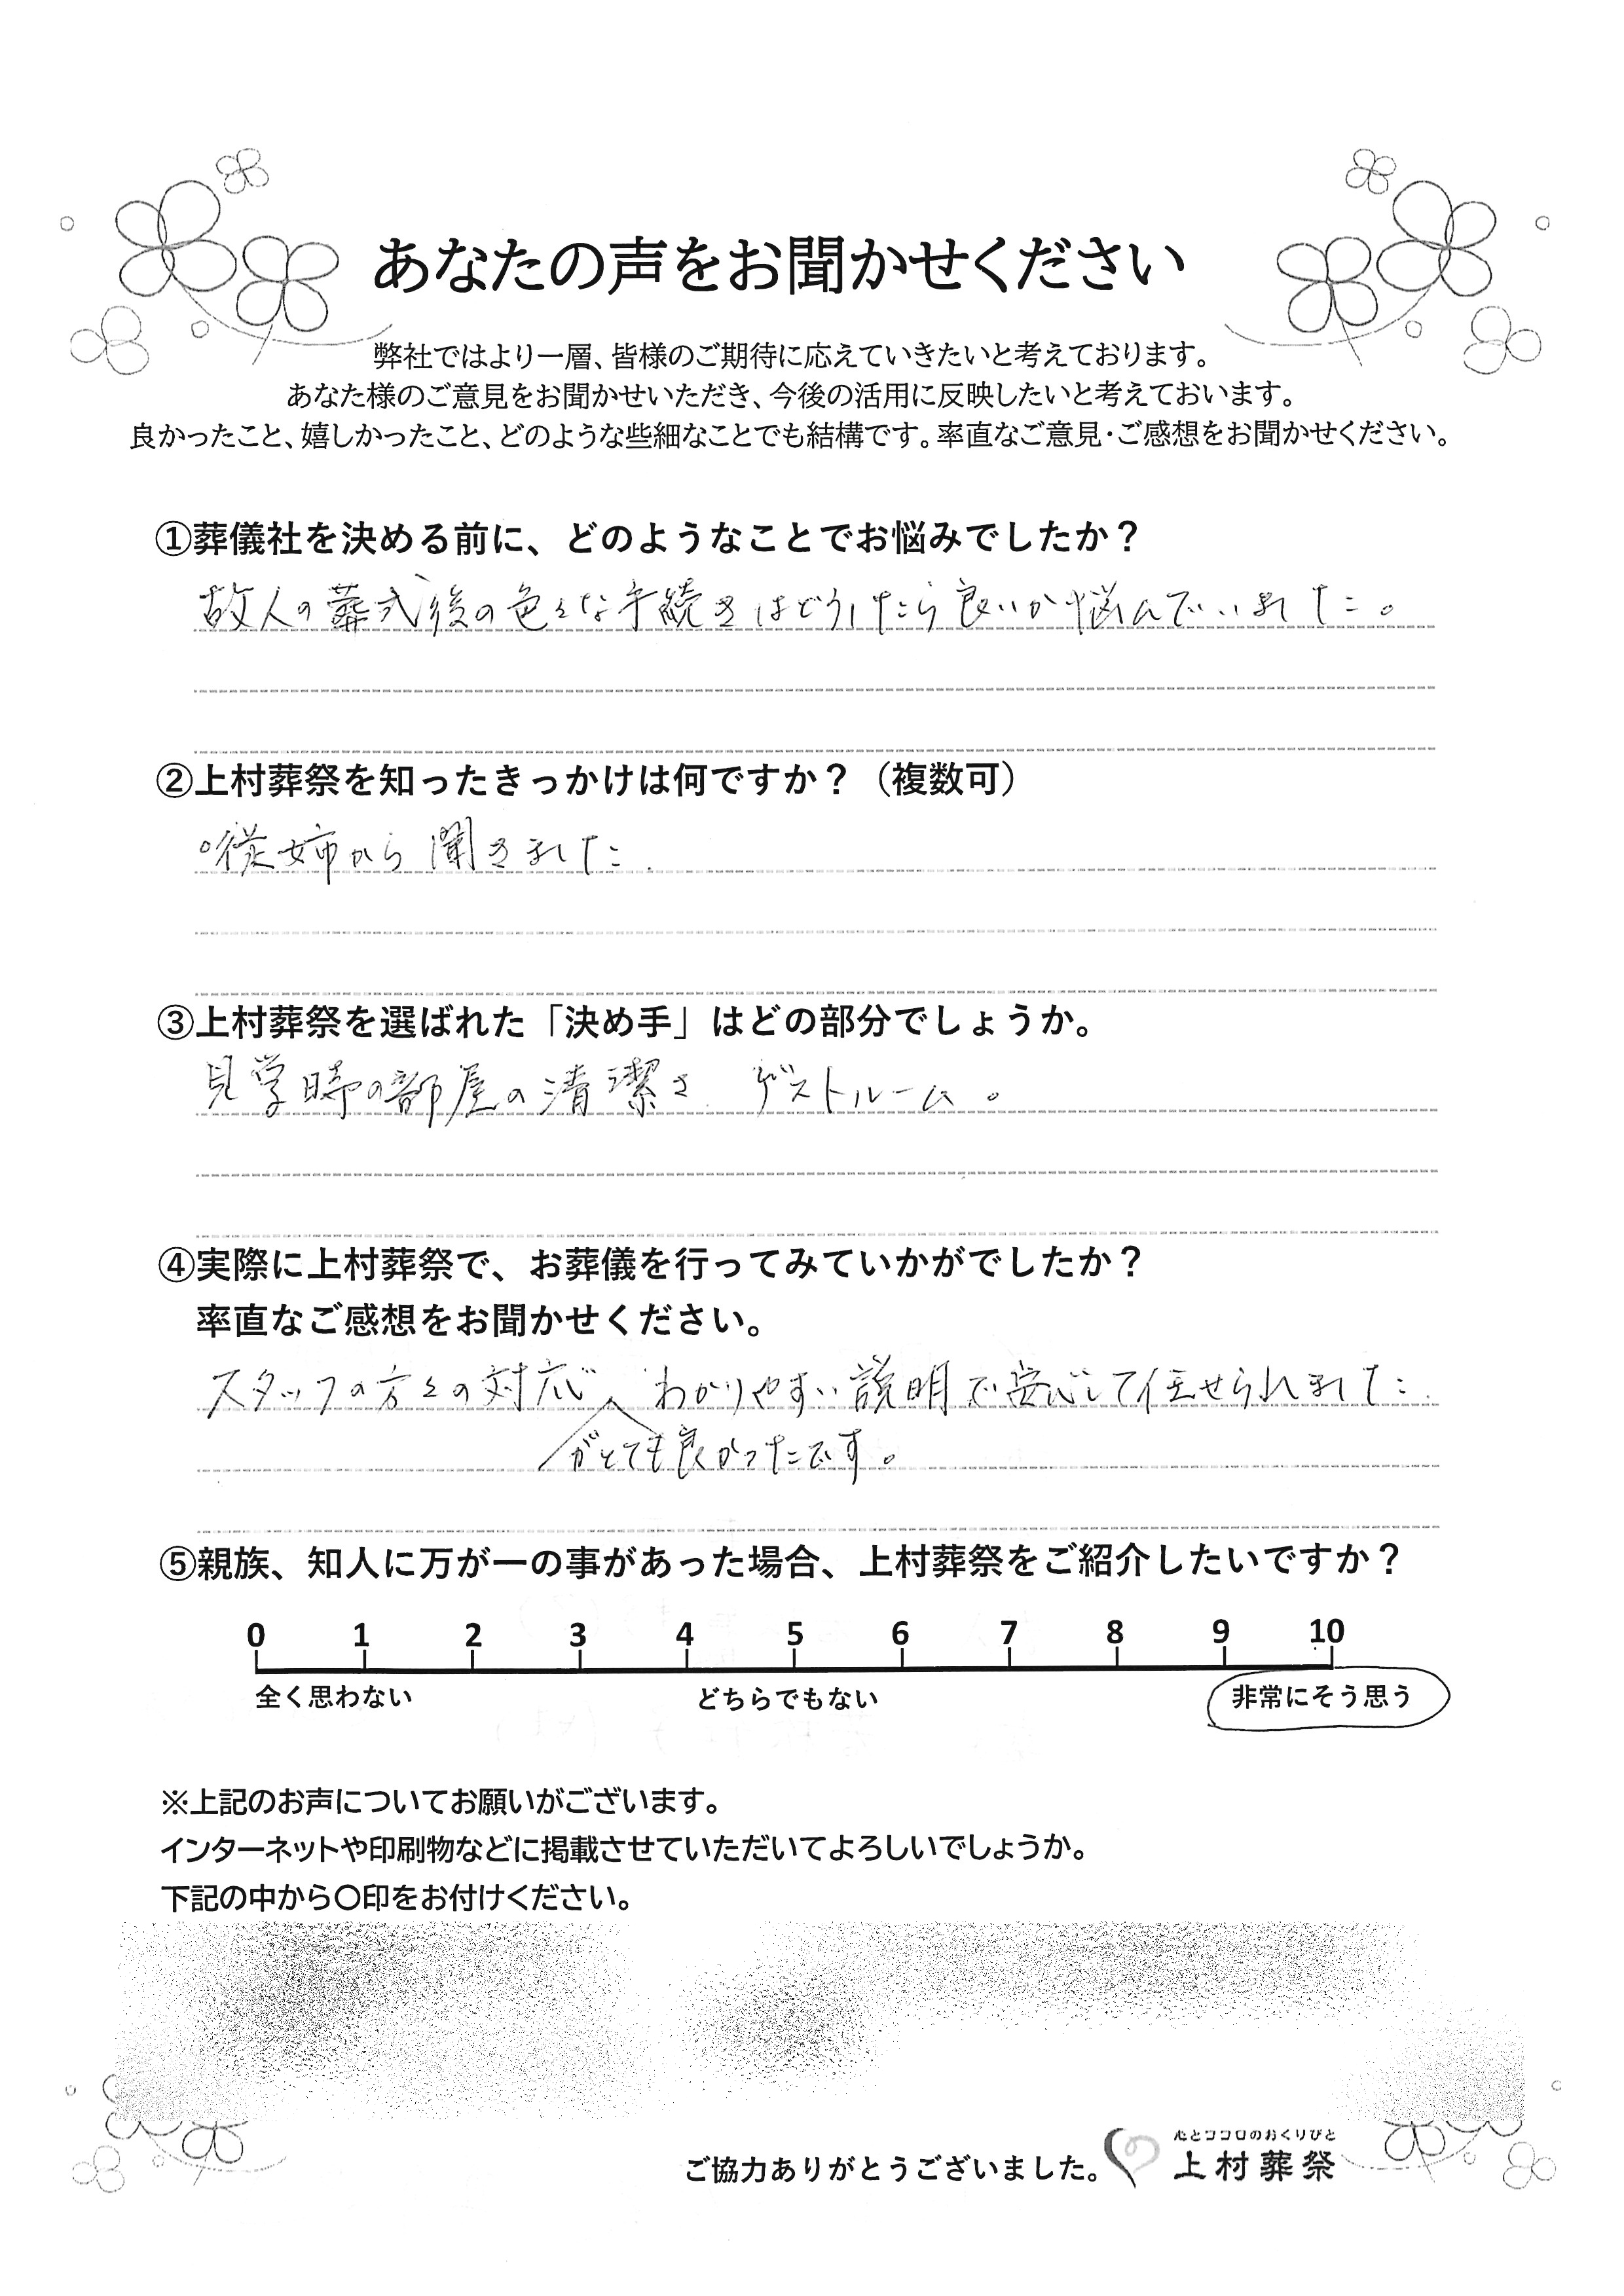 あなたの声をお聞かせください
弊社ではより一層、皆様のご期待に応えていきたいと考えております。
あなた様のご意見をお聞かせいただき、今後の活用に反映したいと考えておいます。
良かったこと、嬉しかったこと、どのような些細なことでも結構です。率直なご意見・ご感想をお聞かせください。
①葬儀社を決める前に、どのようなことでお悩みでしたか？
故人の葬式後の色々な手続きはどうしたら良いか悩んでいました。
②上村葬祭を知ったきっかけは何ですか？（複数可）
。従姉から聞きました.
③上村葬祭を選ばれた「決め手」はどの部分でしょうか。
見学時の部屋の清潔さ. ゲストルーム。
④実際に上村葬祭で、お葬儀を行ってみていかがでしたか？
率直なご感想をお聞かせください。
スタッフの方々の対応 わかりやすい説明で安心して任せられました.
がとても良かったです。
⑤親族、知人に万が一の事があった場合、上村葬祭をご紹介したいですか？
0 1 2 3 4 5 6 7 8 9 10
全く思わない どちらでもない 非常にそう思う
※上記のお声についてお願いがございます。
インターネットや印刷物などに掲載させていただいてよろしいでしょうか。
下記の中から〇印をお付けください。
心とココロのおくりびと
ご協力ありがとうございました。 上村葬祭